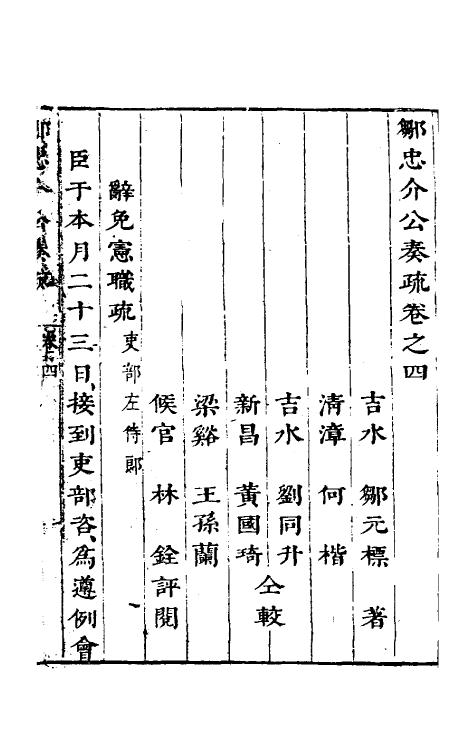 鄒忠介公奏疏卷之四
吉水 鄒元標 著
清漳 何楷
吉水 劉同升
新昌 黃國琦 仝較
梁谿 王孫蘭
候官 林銓評閱
辭免憲職疏 吏部左侍郎
臣于本月二十三日、接到吏部咨、爲遵例會